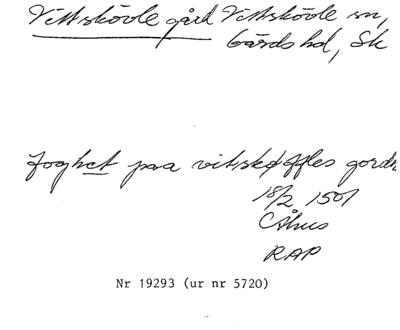 Vittskövle gård Vittskövle sn,
Gärds hd, Sk
foghet paa vitskøffles gorde
18/2 1501
C Åhus
RAP
Nr 19293 (ur nr 5720)